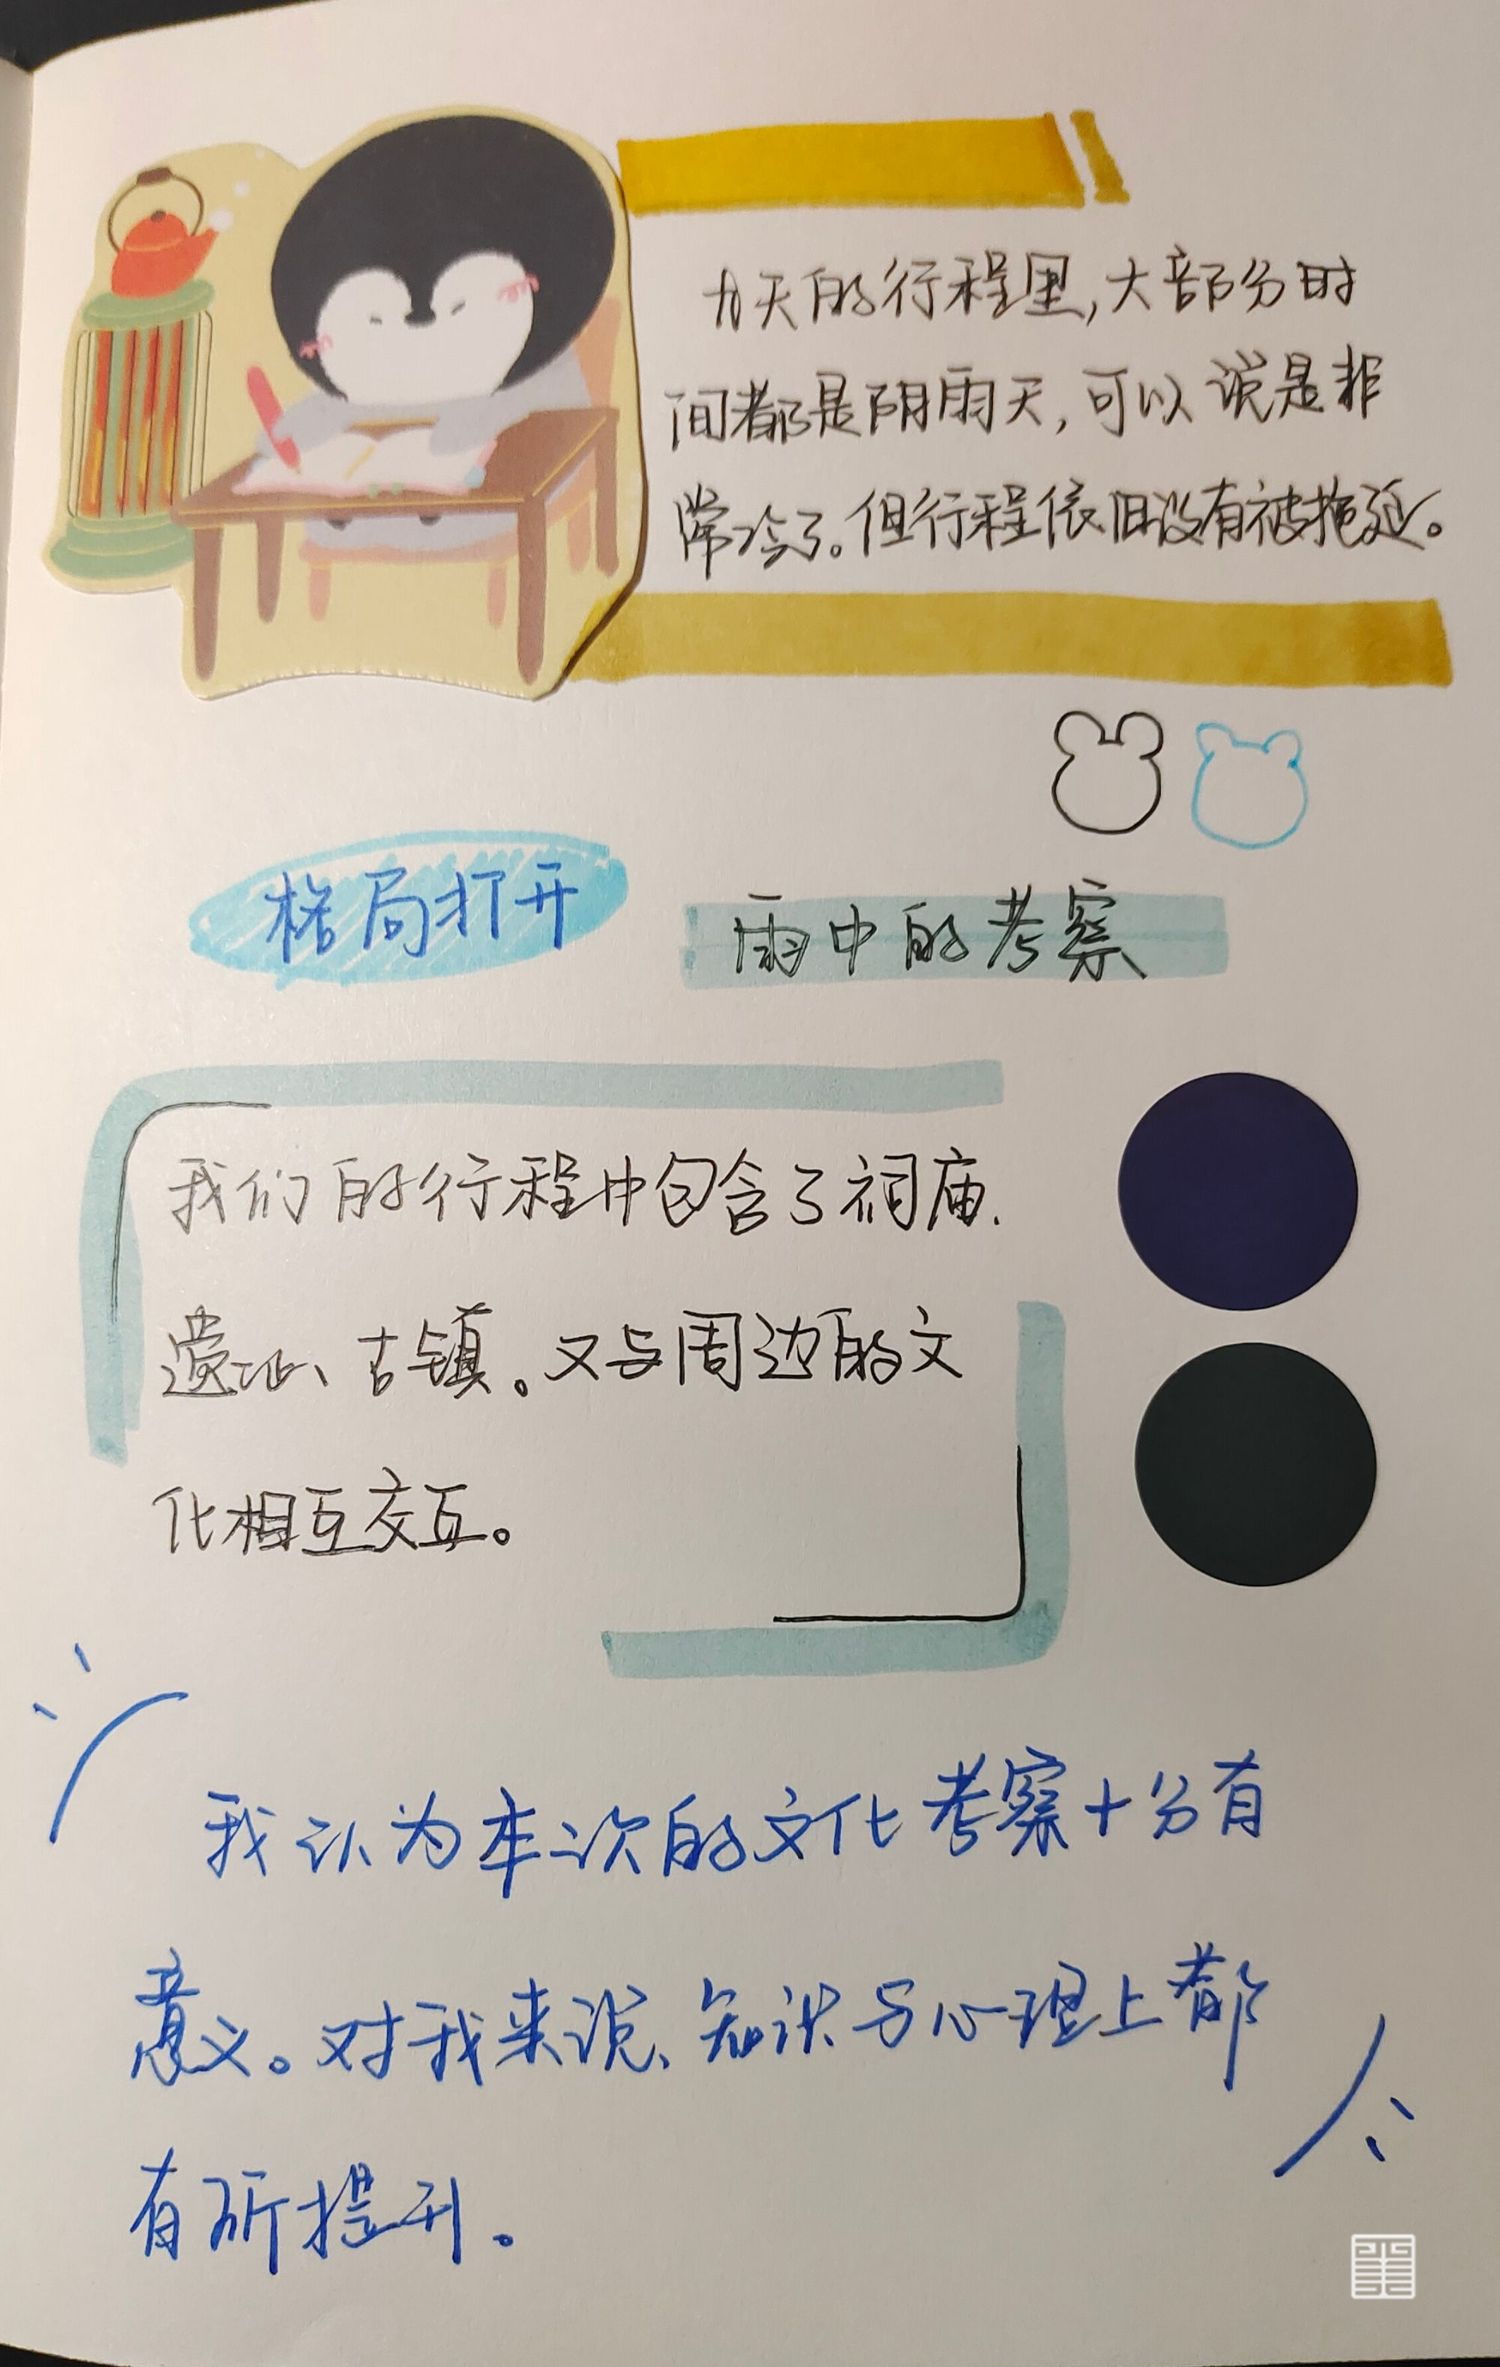 九天的行程里,大部分时
间都是阴雨天,可以说是非
常冷了。但行程依旧没有被拖延。
格局打开
雨中的考察
我们的行程中包含了祠庙、
遗址、古镇。又与周边的文
化相互交互。
我认为本次的文化考察十分有
意义。对我来说、知识与心理上都
有所提升。